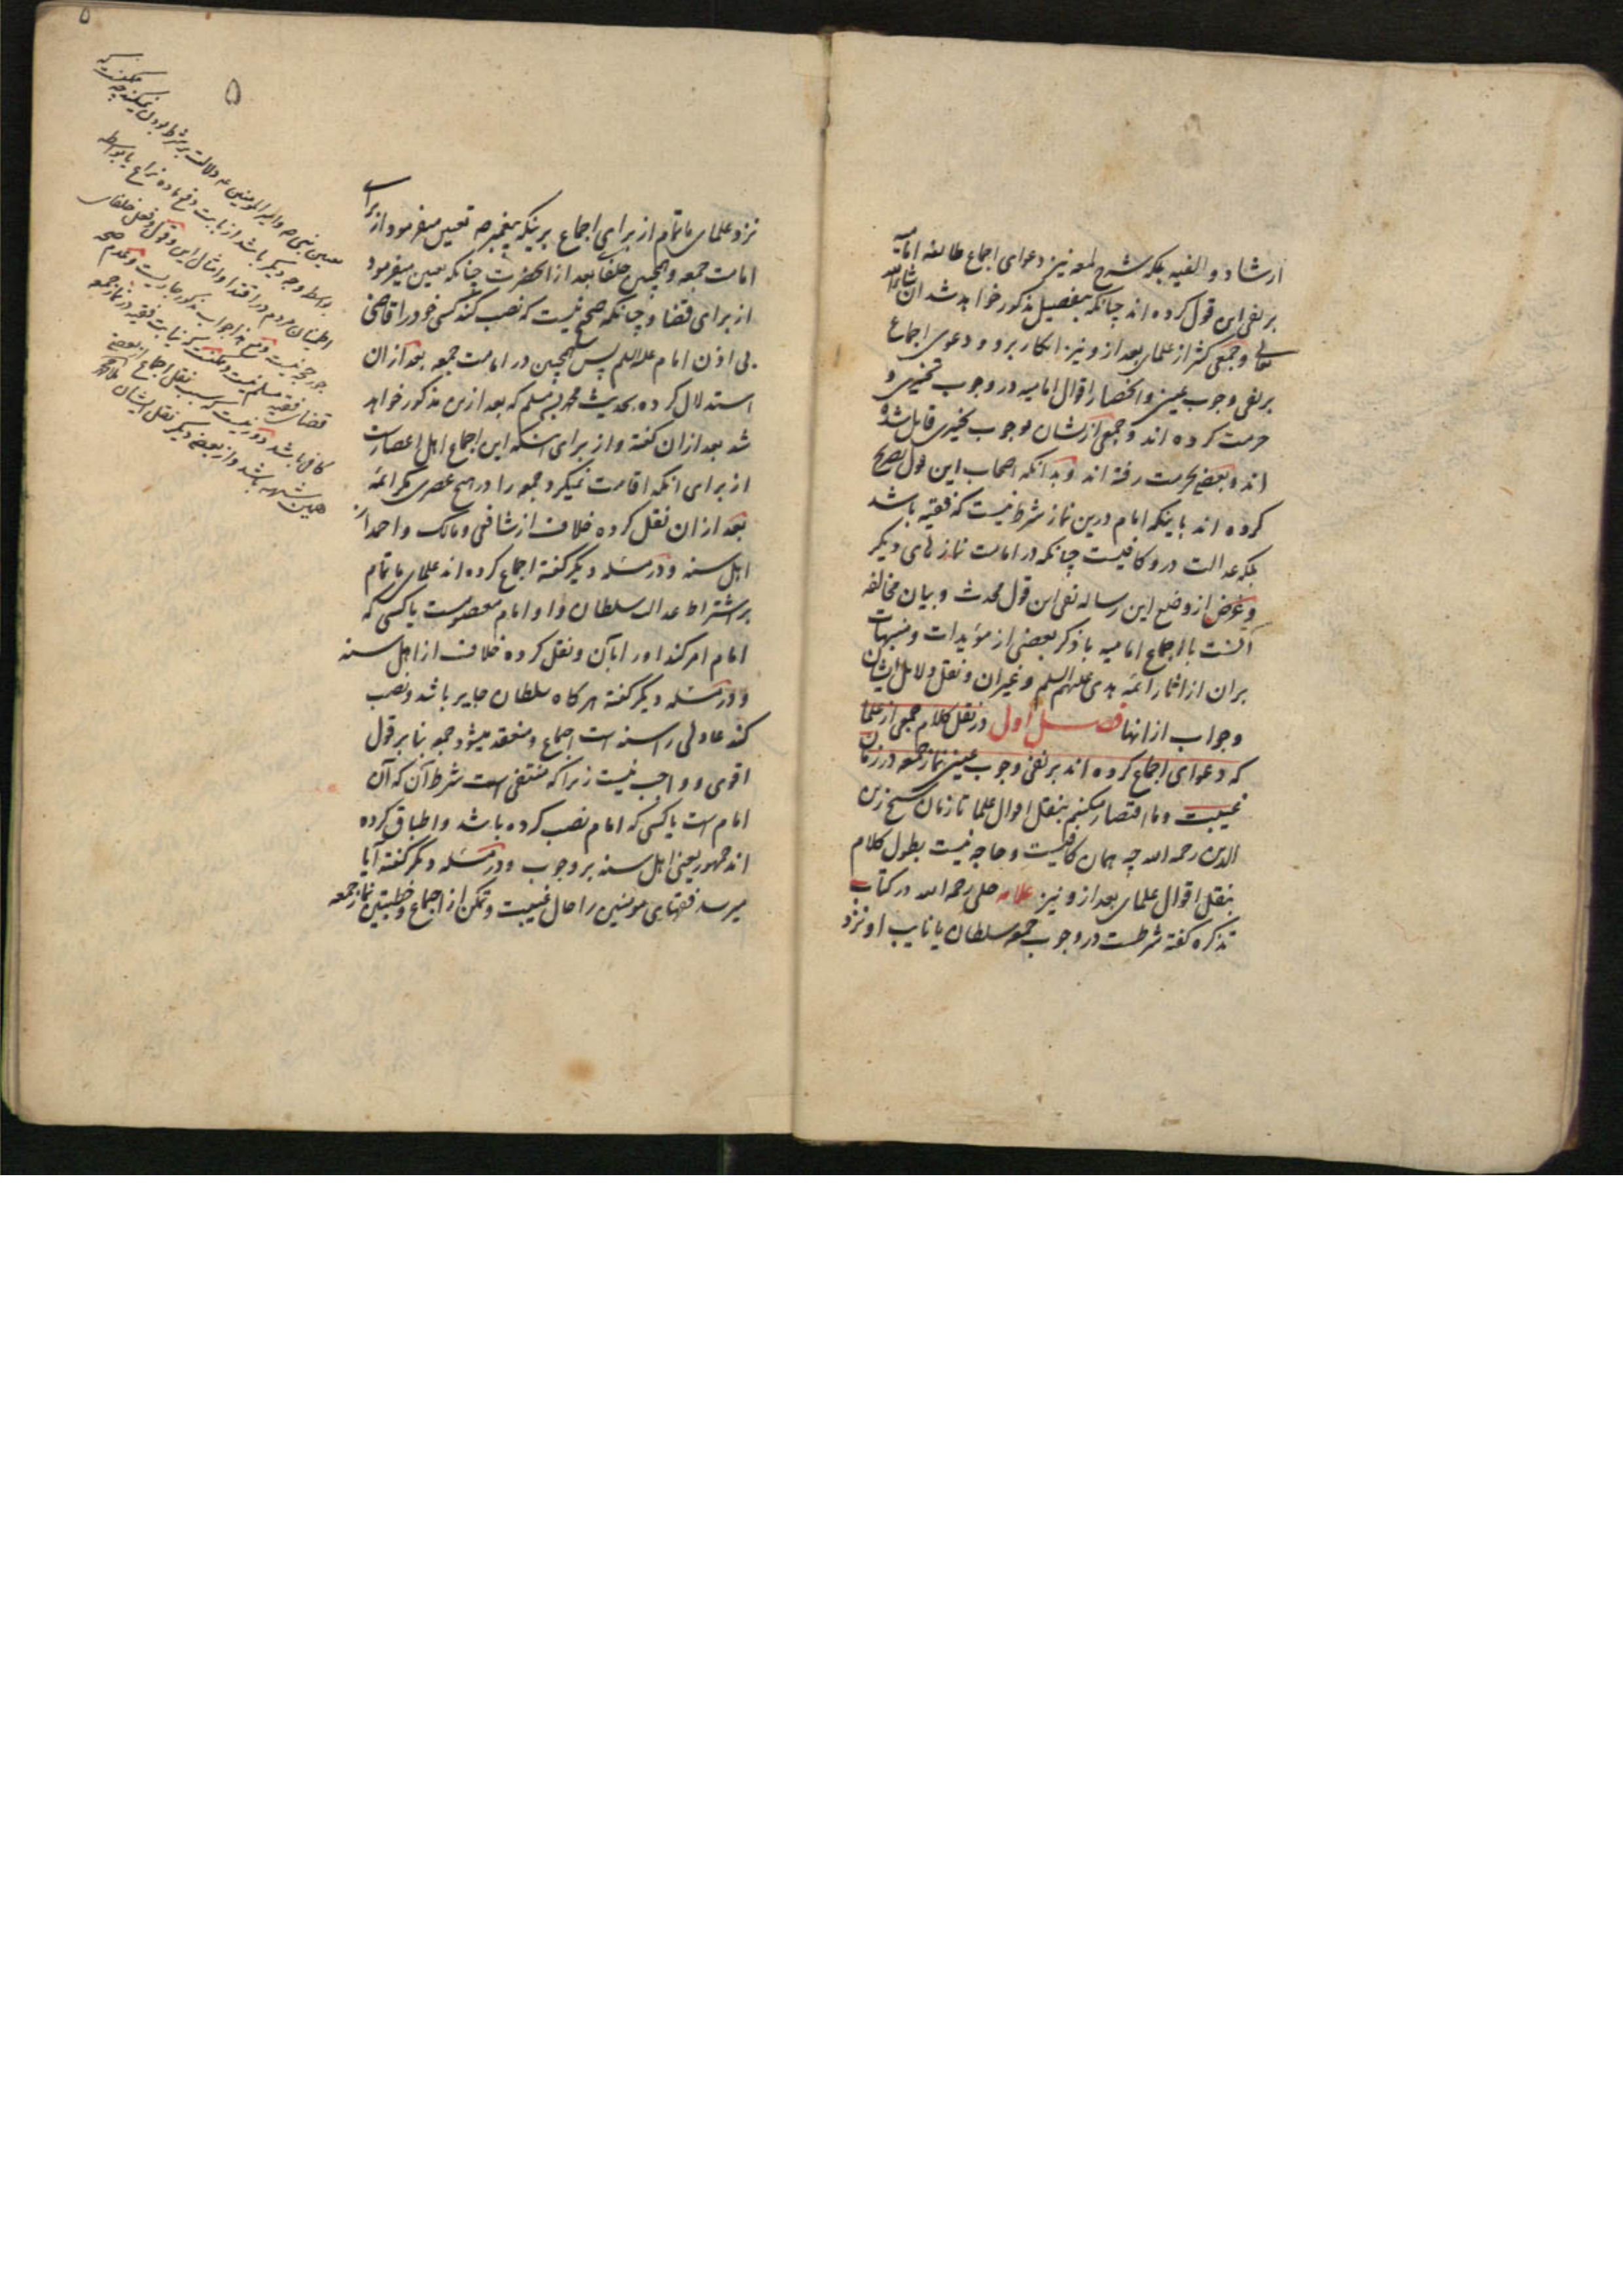 ارشاد و الفیه بلکه شرح لمعه نیز دعوای اجماع طائفه امامیه
بر نفی این قول کرده اند چنانکه بتفصیل مذکور خواهد شد ان شاء الله
تعالی و جمعی کثیر از علمای بعد ازو نیز انکار برو و دعوی اجماع
بر نفی وجوب عینی و انحصار اقوال امامیه در وجوب تخییری و
حرمت کرده اند و جمعی ازیشان بوجوب تخییری قایل شده
اند و بعضی بحرمت رفته اند و بدانکه اصحاب این قول تصریح
کرده اند باینکه امام درین نماز شرط نیست که فقیه باشد
بلکه عدالت درو کافیست چنانکه در امامت نمازهای دیگر
و غرض از وضع این رساله نفی این قول محدث و بیان مخالفه
آنست با اجماع امامیه با ذکر بعضی از مؤیدات و منبهات
بران از اثار ائمه هدی علیهم السلم و غیران و نقل دلایل ایشان
و جواب ازانها فصل اول در نقل کلام جمعی از علما
که دعوای اجماع کرده اند بر نفی وجوب عینی نماز جمعه در زمان
غیبت و ما اقتصار میکنیم بنقل اقوال علما تا زمان شیخ زین
الدین رحمه الله چه همان کافیست و حاجه نیست بطول کلام
بنقل اقوال علمای بعد ازو نیز علامه حلی رحمه الله در کتاب
تذکره گفته شرطست در وجوب جمعه سلطان یا نایب او نزد
۵
۵
نزد علمای ما تمام از برای اجماع برینکه پیغمبر ص تعیین میفرمود از برای
امامت جمعه و همچنین خلفا بعد از انحضرت چنانکه تعیین میفرمود
از برای قضا و چنانکه صحیح نیست که نصب کند کسی خود را قاضی
بی اذن امام علیه السلم پس همچنین در امامت جمعه بعد ازان
استدلال کرده بحدیث محمد بن مسلم که بعد ازین مذکور خواهد
شد بعد ازان گفته و از برای اینکه این اجماع اهل اعصارست
از برای انکه اقامت نمیکرد جمعه را در هیچ عصری مگر ائمه
بعد ازان نقل کرده خلاف از شافعی و مالک و احمد از
اهل سنه و در مسئله دیگر گفته اجماع کرده اند علمای ما تمام
بر اشتراط عدالت سلطان و او امام معصومست یا کسی که
امام امر کند او را بآن و نقل کرده خلاف از اهل سنه
و در مسئله دیگر گفته هرگاه سلطان جایر باشد و نصب
کند عادلی را سنه است اجماع و منعقد میشود جمعه بنا بر قول
اقوی و واجب نیست زیرا که منتفی است شرط آن که آن
امام است یا کسی که امام نصب کرده باشد و اطباق کرده
اند جمهور یعنی اهل سنه بر وجوب و در مسئله دیگر گفته آیا
میرسد فقهای مومنین را حال غیبت و تمکن از اجماع و خطبتین نماز جمعه
تعیین نبی ص و امیر المومنین ع دلالت بر شرط بودن نمیکند چه
بواسطه وجه دیگر باشد از بابت دفع ماده نزاع یا بواسطه
اطمینان مردم در اقتدا و امثال این
کافی باشد
همین شبهه باشد و از بعضی دیگر نقل ایشان